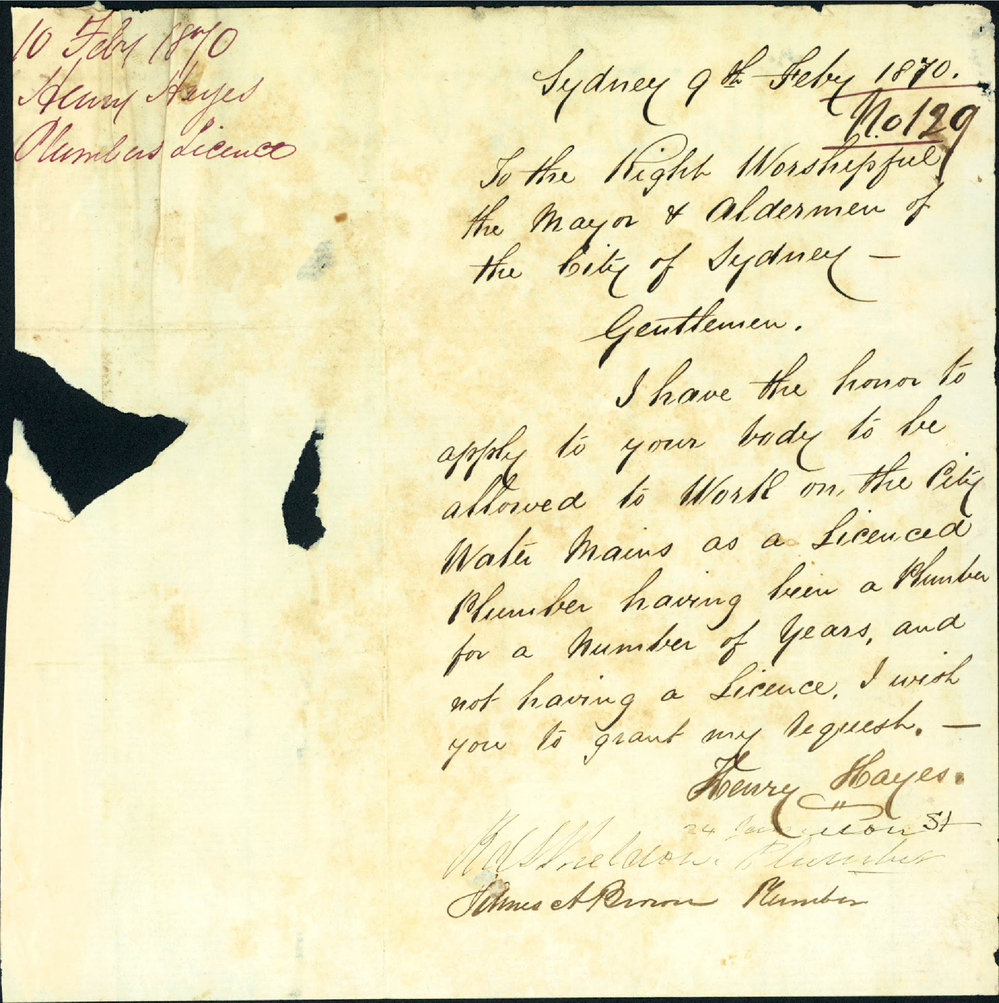 10 Feby 1870
Henry Hayes
Plumbers Licence
Sydney 9th Feby 1870.
No 129
To the Right Worshipful
the Mayor & Aldermen of
the City of Sydney —
Gentlemen.
I have the honor to
apply to your body to be
allowed to Work on, the City
Water Mains as a Licenced
Plumber having been a Plumber
for a Number of Years, and
not having a Licence, I wish
you to grant my request. —
Henry Hayes.
24 St
Sheldon. Plumber
James A Brown Plumber